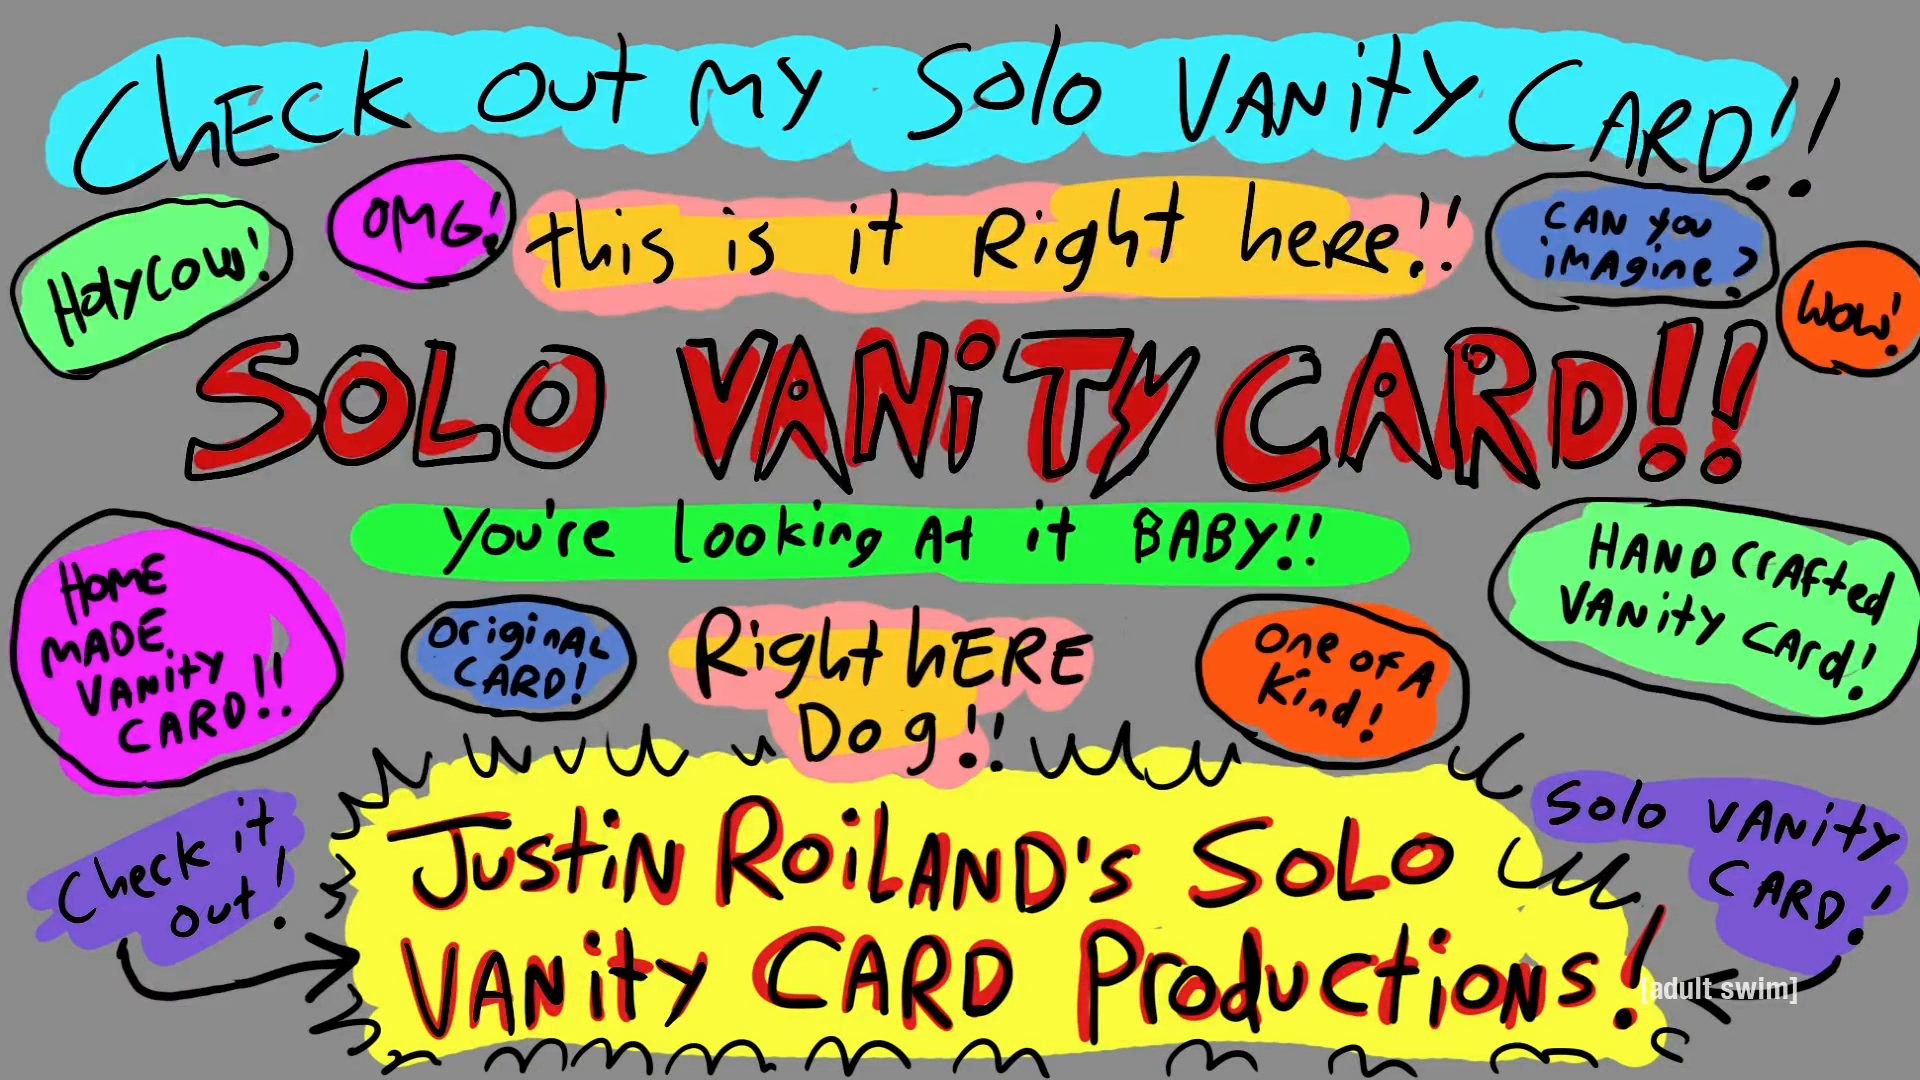 CHECK OUT MY SOLO VANITY CARD!!
OMG!
this is it Right here!!
CAN YOU
iMAgine?
HolyCOW!
WOW!
SOLO VANiTY CARD!!
You're looking At it BABY!!
HOME
MADE
VANiTY
CARD!!
OriginAL
CARD!
Right hERE
Dog!!
One oF A
Kind!
HANDCrAfted
VANity CArd!
Check it
out!
Solo VANity
CARD!
JustiN RoiLAND's SoLo
VANity CARD Productions!
[adult swim]